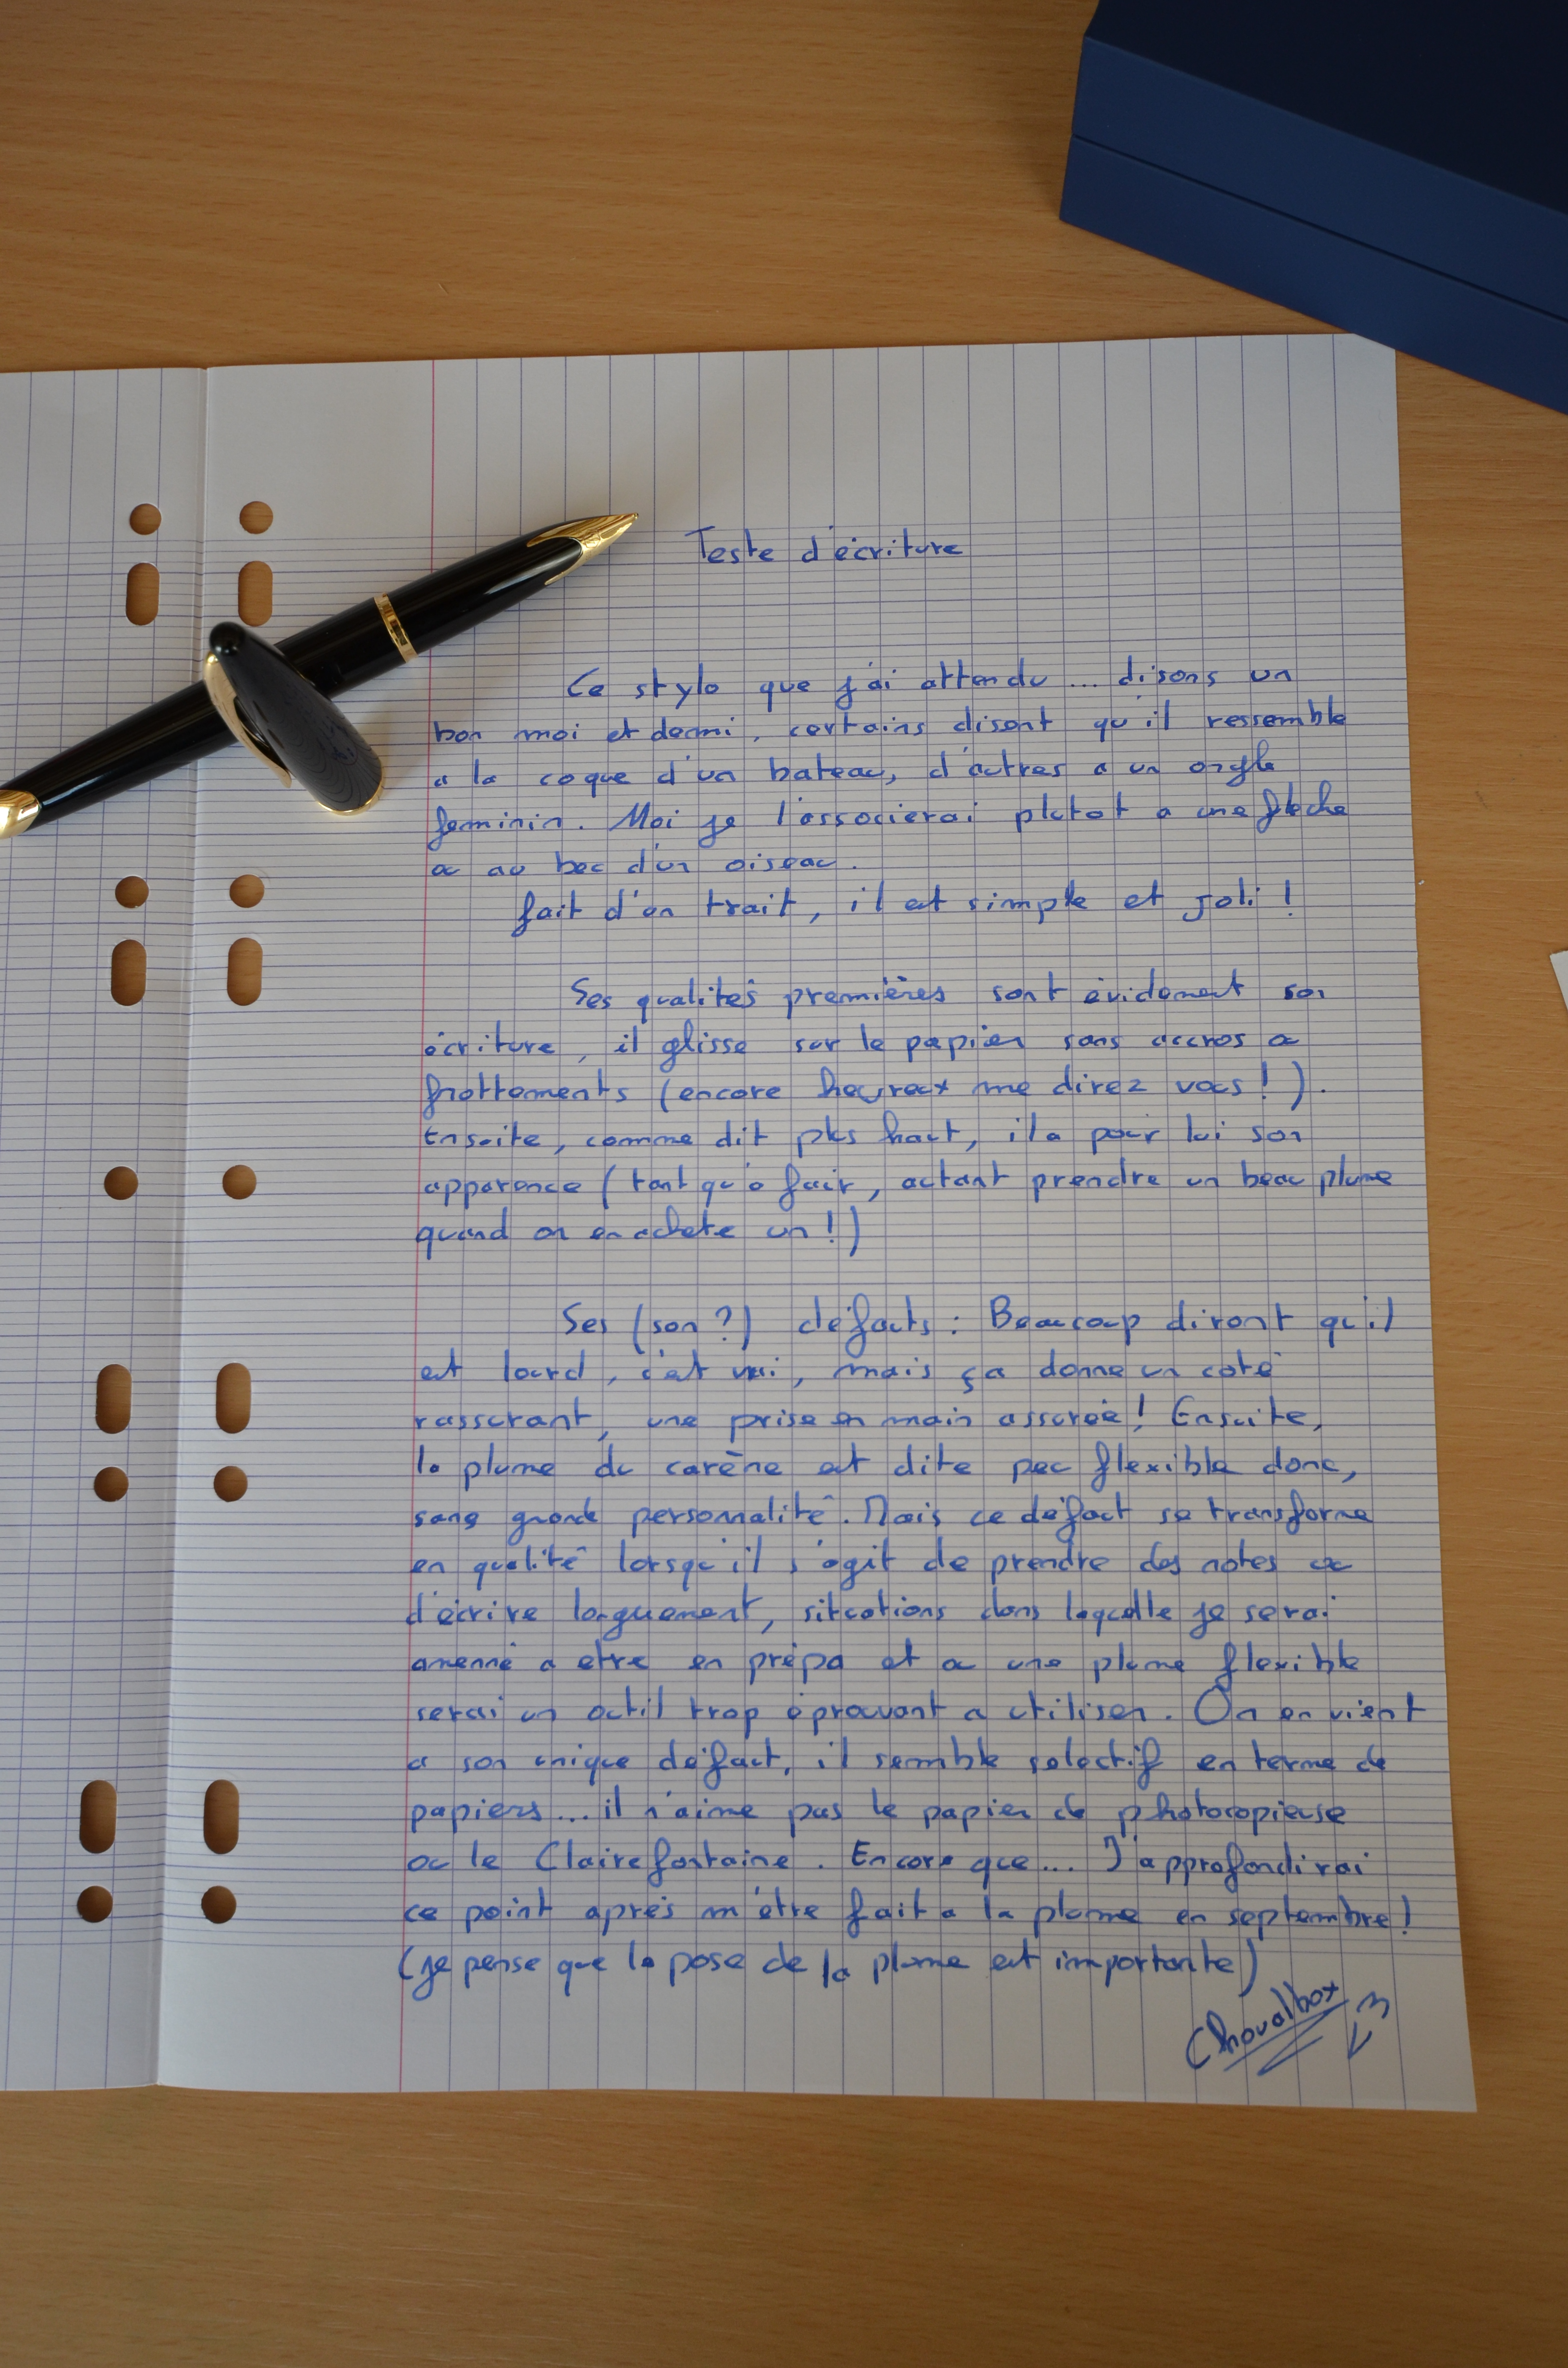 Teste d'écriture
Ce stylo que j'ai attendu ... disons un
bon moi et demi, certains disent qu'il ressemble
a la coque d'un bateau, d'autres a un ongle
feminin. Moi je l'associerai plutot a une flèche
ou au bec d'un oiseau.
fait d'un trait, il est simple et joli !
Ses qualités premières sont évidement son
écriture, il glisse sur le papier sans accros ou
frottements (encore heureux me direz vous !).
Ensuite, comme dit plus haut, il a pour lui son
apparence (tant qu'a fair, autant prendre un beau plume
quand on en achete un !)
Ses (son ?) défauts : Beaucoup diront qu'il
est lourd, c'est vrai, mais ça donne un coté
rassurant, une prise en main assurée ! Ensuite,
la plume du carène est dite peu flexible donc,
sans grande personnalité. Mais ce défaut se transforme
en qualité lorsqu'il s'agit de prendre des notes ou
d'écrire longuement, situations dans laquelle je serai
amenné a etre en prépa et ou une plume flexible
serai un outil trop éprouvant a utiliser. On en vient
a son unique défaut, il semble selectif en terme de
papiers... il n'aime pas le papier de photocopieuse
ou le Clairefontaine. Encore que... J'approfondirai
ce point après m'étre fait a la plume en septembre !
(je pense que la pose de la plume est importante)
Chevalbox
<3